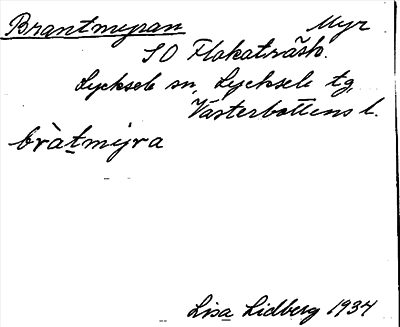 Brantmyran Myr
SO Flakaträsk.
Lycksele sn, Lycksele tg,
Västerbottens l.
bràtmyra
Lisa Lidberg 1934